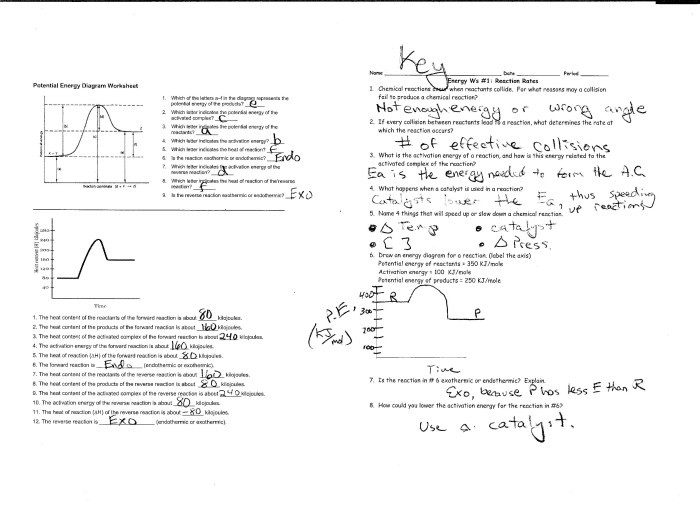 Potential Energy Diagram Worksheet
1. Which of the letters a–f in the diagram represents the
potential energy of the products? e
2. Which letter indicates the potential energy of the
activated complex? c
3. Which letter indicates the potential energy of the
reactants? a
4. Which letter indicates the activation energy? b
5. Which letter indicates the heat of reaction? f
6. Is the reaction exothermic or endothermic? Endo
7. Which letter indicates the activation energy of the
reverse reaction? d
8. Which letter indicates the heat of reaction of the reverse
reaction? f
9. Is the reverse reaction exothermic or endothermic? Exo
Heat content (H) kilojoules
80
40
Time
1. The heat content of the reactants of the forward reaction is about 80 kilojoules.
2. The heat content of the products of the forward reaction is about 160 kilojoules.
3. The heat content of the activated complex of the forward reaction is about 240 kilojoules.
4. The activation energy of the forward reaction is about 160 kilojoules.
5. The heat of reaction (ΔH) of the forward reaction is about 80 kilojoules.
6. The forward reaction is Endo (endothermic or exothermic).
7. The heat content of the reactants of the reverse reaction is about 160 kilojoules.
8. The heat content of the products of the reverse reaction is about 80 kilojoules.
9. The heat content of the activated complex of the reverse reaction is about 240 kilojoules.
10. The activation energy of the reverse reaction is about 80 kilojoules.
11. The heat of reaction (ΔH) of the reverse reaction is about -80 kilojoules.
12. The reverse reaction is EXO (endothermic or exothermic).
Key
Name Date Period
Energy Ws #1: Reaction Rates
1. Chemical reactions occur when reactants collide. For what reasons may a collision
fail to produce a chemical reaction?
Not enough energy or wrong angle
2. If every collision between reactants lead to a reaction, what determines the rate at
which the reaction occurs?
# of effective collisions
3. What is the activation energy of a reaction, and how is this energy related to the
activated complex of the reaction?
Ea is the energy needed to form the A.C
4. What happens when a catalyst is used in a reaction?
Catalysts lower the Ea, thus speeding
up reactions
5. Name 4 things that will speed up or slow down a chemical reaction.
Δ Temp • catalyst
[ ] • Δ Press.
6. Draw an energy diagram for a reaction. (label the axis)
Potential energy of reactants = 350 KJ/mole
Activation energy = 100 KJ/mole
Potential energy of products = 250 KJ/mole
400 R
P.E. 300 P
(KJ/mol) 200
100
Time
7. Is the reaction in # 6 exothermic or endothermic? Explain.
Exo, because P has less E than R
8. How could you lower the activation energy for the reaction in #6?
Use a catalyst.